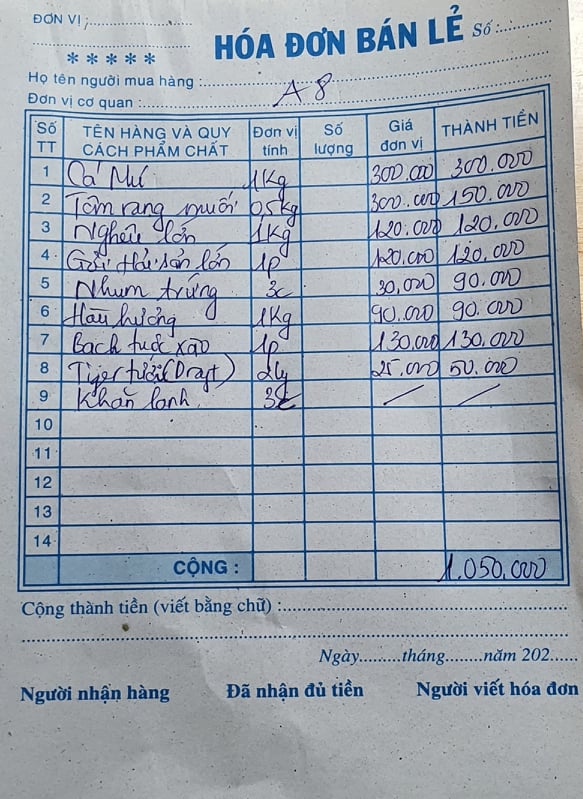 ĐƠN VỊ :
HÓA ĐƠN BÁN LẺ Số :
*****
Họ tên người mua hàng :
Đơn vị cơ quan : A8
Số TT TÊN HÀNG VÀ QUY CÁCH PHẨM CHẤT Đơn vị tính Số lượng Giá đơn vị THÀNH TIỀN
1 Cá Mú 1Kg 300.000 300.000
2 Tôm rang muối 0,5kg 300.000 150.000
3 Nghêu lớn 1Kg 120.000 120.000
4 Gỏi Hải sản lớn 1p 120.000 120.000
5 Nhum trứng 3c 30,000 90.000
6 Hàu hương 1Kg 90.000 90.000
7 Bạch tuộc xào 1p 130.000 130.000
8 Tiger tươi (Draft) 2ly 25.000 50.000
9 Khăn lạnh 3c / /
10
11
12
13
14
CỘNG : 1.050.000
Cộng thành tiền (viết bằng chữ) :
Ngày.........tháng........năm 202......
Người nhận hàng Đã nhận đủ tiền Người viết hóa đơn